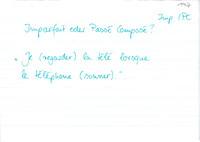 Imp / PC
Imparfait oder Passé Composé ?
"Je (regarder) la télé lorsque
le téléphone (sonner)."